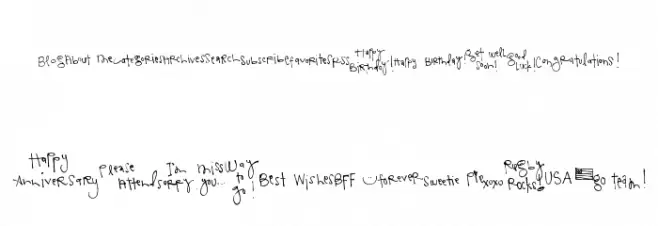 BlogAbout MeCategoriesArchivesSearchSubscribeFavoritesRSS Happy Birthday!Happy Birthday!Get well soon!Good Luck!Congratulations!
Happy Anniversary Please Attend I'm sorry miss you... Way to go! Best WishesBFF forever Sweetie xoxo Rugby Rocks! USA go team!